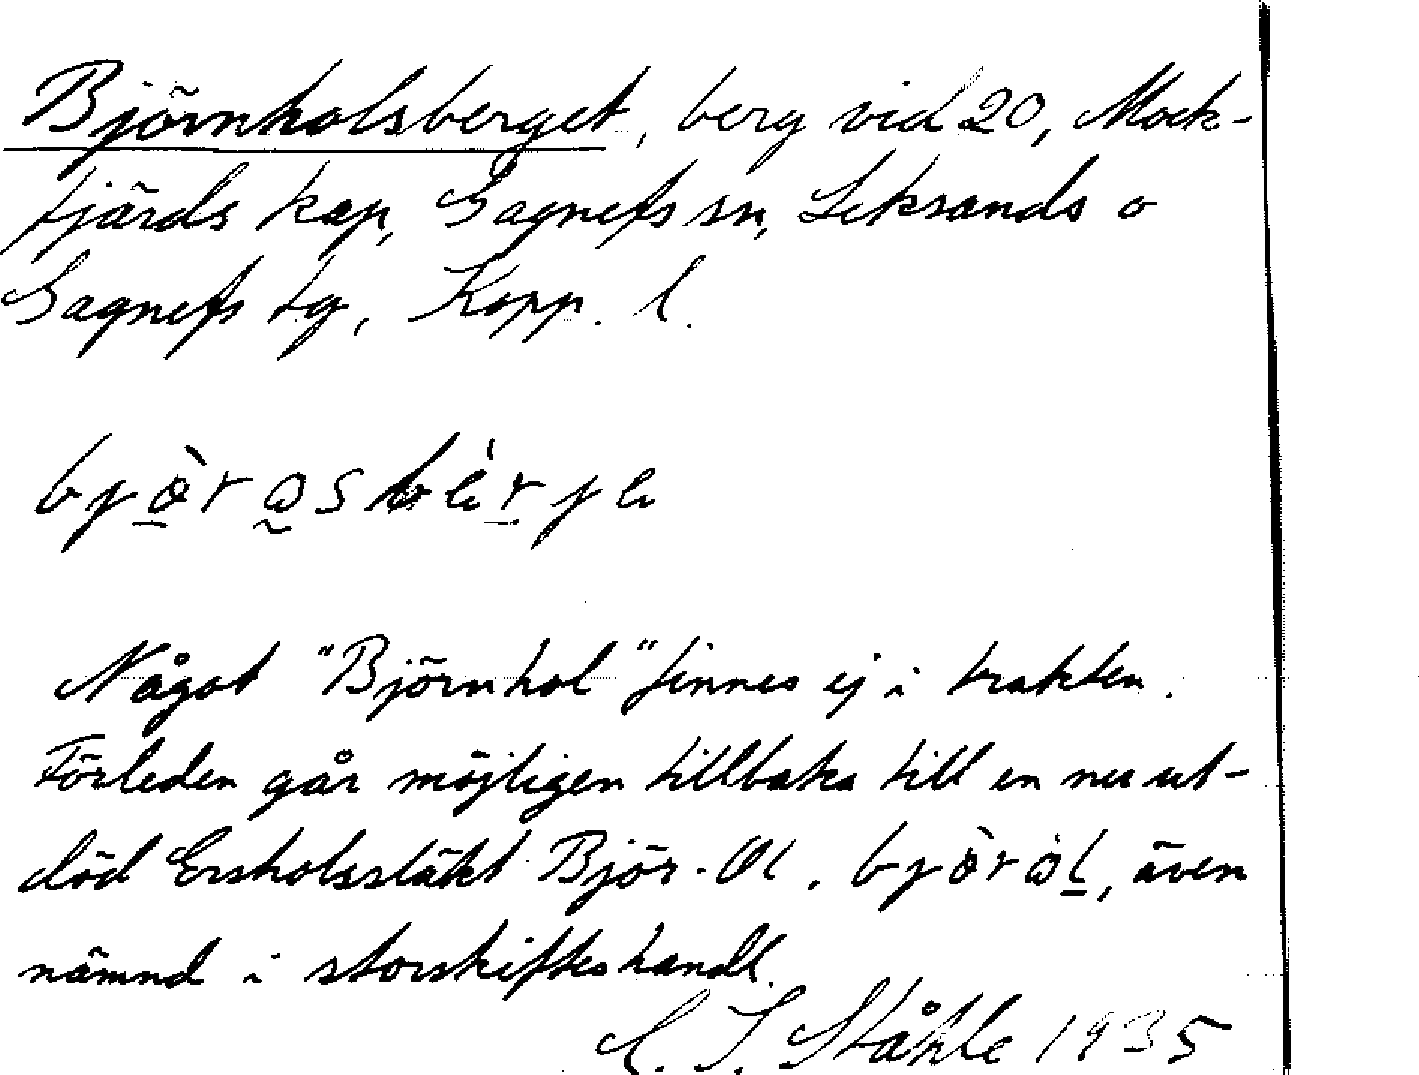 Björnholsberget, berg vid 20, Mock-
fjärds kap., Gagnefs sn, Leksands o
Gagnefs tg, Kopp. l.
Något "Björnhol" finnes ej i trakten.
Förleden går möjligen tillbaka till en nu ut-
död Ersholssläkt Björ-Ol, även
nämnd i storskifteshandl.
C. I. Ståhle 1935